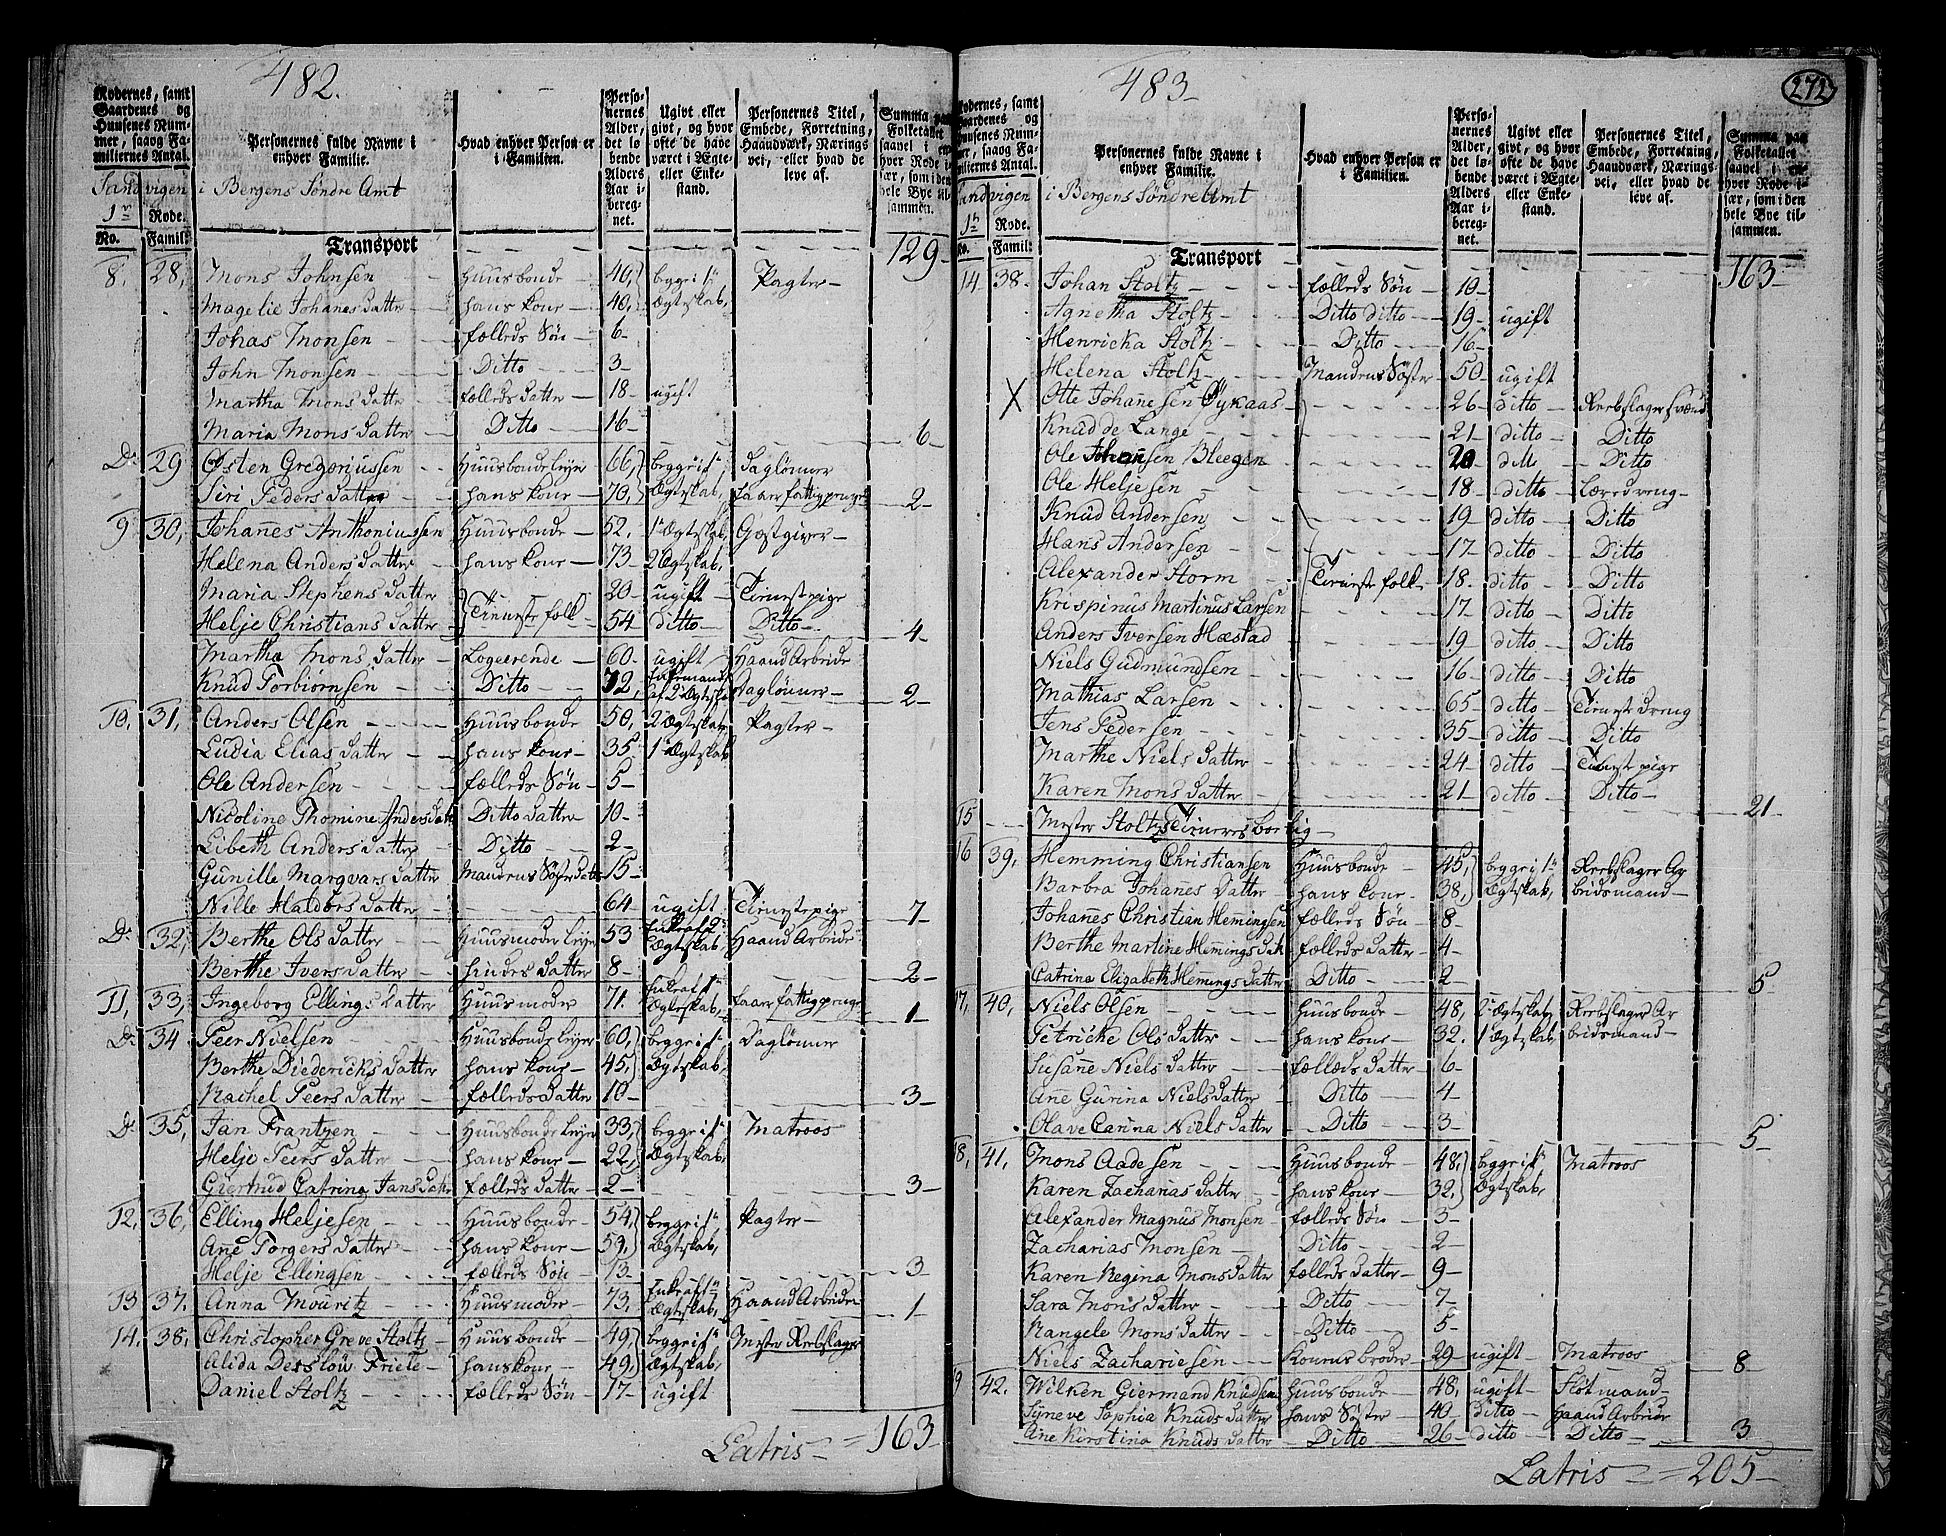 482.
Rodernes, samt Gaardenes og Huusenes Nummer, saaog Familiernes Antal.
Personernes fulde Navne i enhver Familie.
Hvad enhver Person er i Familien.
Personernes Alder, det løbende Alders Aar iberegnet.
Ugivt eller givt, og hvor ofte de have været i Ægte- eller Enkestand.
Personernes Titel, Embede, Forretning, Haandværk, Næringsvei, eller hvad de leve af.
Summa paa Folketallet saavel i enhver Rode især, som i den hele Bye tilsammen.
Sandvigen i Bergens Søndre Amt
1n Rode.
No. Famil:
Transport 129
8. 28, Mons Johnsen Huusbonde 40, begge i 1te Pagter
Magelie Johanes Datter hans kone 40, Ægteskab,
Johas Monsen fælleds Søn 6
John Monsen Ditto 3
Martha Mons Datter fælleds Datter 18 ugift
Maria Mons Datter Ditto 16 6
Do 29 Østen Gregoriussen Huusbonde leyer 66, begge i 1te Daglønner
Siri Peders Datter hans kone 70, Ægteskab, faaer fattigpenge 2
9 30, Johañes Anthoniussen Huusbonde 52. 1te Ægteskab, Gæstgiver
Helena Anders Datter hans kone 73 2 Ægteskab,
Maria Stephens Datter Tieneste folk 20 ugift Tienestepige
Helje Christians Datter 54 ditto Ditto 4
Martha Mons Datter Logerende 60 ugift Haand Arbeide
Knud Torbiørnsen Ditto 72, Enkemand af 2 Ægteskab Daglønner 2
10, 31, Anders Olsen Huusbonde 50, 2 Ægteskab, Pagter
Ludia Elias Datter hans kone 35 1te Ægteskab
Ole Andersen fælleds Søn 5
Nicoline Thomine Anders Datt Ditto Datter 10
Lisbeth Anders Datter Ditto 2
Gunille Marqvars Datter Mandens Søster Datter 15
Nille Haldors Datter 64 ugift Tienestepige 7
Do 32, Berthe Ols Datter Huusmoder leyer 53 Enke af 2 Ægteskab Haand Arbeide
Berthe Ivers Datter hendes Datter 8 2
11, 33, Ingeborg Ellings Datter Huusmoder 71. Enke af 1te Ægteskab, faaer fattigpenge 1
Do 34 Peer Nielsen Huusbonde leyer 60, begge i 1te Daglønner
Berthe Diedericks Datter hans kone 45, Ægteskab,
Rachel Peers Datter fælleds Datter 10 3
Do 35, Jan Frantzen Huusbonde leyer 33, begge i 1te Matroos
Helje Peers Datter hans kone 22, Ægteskab,
Giertrud Catrina Jans Datter fælleds Datter 2 3
12, 36, Elling Heljesen Huusbonde 54, begge i 1te Pagter
Ane Torgers Datter hans kone 59, Ægteskab,
Helje Ellingsen fælleds Søn 13 3
13 37. Anna Mouritz Huusmoder 73, Enke af 1te Ægteskab, Haand Arbeide 1
14. 38, Christopher Greve Stoltz Huusbonde 49, begge i 1te Mester Reebslager
Alida Desslow Friele hans kone 49, Ægteskab,
Daniel Stoltz fælleds Søn 17 ugift
Latris = 163
483
272
Rodernes, samt Gaardenes og Huusenes Nummer, saaog Familiernes Antal.
Personernes fulde Navne i enhver Familie.
Hvad enhver Person er i Familien.
Personernes Alder, det løbende Alders Aar iberegnet.
Ugivt eller givt, og hvor ofte de have været i Ægte- eller Enkestand.
Personernes Titel, Embede, Forretning, Haandværk, Næringsvei, eller hvad de leve af.
Summa paa Folketallet saavel i enhver Rode især, som i den hele Bye tilsammen.
Sandvigen i Bergens Søndre Amt
1n Rode.
No. Famil:
Transport 163
14 38. Johan Stoltz fælleds Søn 10
Agnetha Stoltz Ditto ditto 19 ugift
Henricka Stoltz Ditto 16
Helena Stoltz Mandens Søster 50 ugift
X Otte Johanesen Øykaas 26 ditto Reebslager svend
Knud de Lange 21 ditto Ditto
Ole Johansen Bleegen 20 ditto Ditto
Ole Heljesen 18 ditto Læredreng
Knud Andersen 19 ditto Ditto
Hans Andersen 17 ditto Ditto
Alexander Storm Tieneste folk 18. ditto Ditto
Krispinus Martinus Larsen 17 ditto Ditto
Anders Iversen Hæstad 19 ditto Ditto
Niels Gudmundsen 16 ditto Ditto
Mathias Larsen 65 ditto Tieneste dreng
Jens Pedersen 35 ditto Ditto
Marthe Niels Datter 24 ditto Tieneste pige
Karen Mons Datter 21 ditto Ditto 21
15 Mester Stoltz Tieneres boelig
16 39, Hemming Christiansen Huusbonde 45, begge i 1te Reebslager Ar
Barbra Johañes Datter hans kone 38, Ægteskab, beidsmand
Johañes Christian Hemingsen fælleds Søn 8
Berthe Martine Hemings Datt fælleds Datter 4
Catrina Elizabeth Hemings Datter Ditto 2 5
17, 40, Niels Olsen Huusbonde 48, 2 Ægteskab, Reebslager Ar
Petricke Ols Datter hans kone 32. 1 Ægteskab, beidsmand
Susañe Niels Datter fælleds Datter 6
Ane Gurina Niels Datter Ditto 4
Olave Carina Niels Datter Ditto 3 5
18, 41, Mons Aadesen Huusbonde 48, begge i 1te Matroos
Karen Zacharias Datter hans kone 32, Ægteskab,
Alexander Magnus Monsen fælleds Søn 3
Zacharias Monsen Ditto 2
Karen Regina Mons Datter fælleds Datter 9
Sara Mons Datter Ditto 7
Rangele Mons Datter Ditto 5
Niels Zachariesen Konens broder 29 ugift Matroos 8
19 42. Wilken Giermand Knudsen Huusbonde 48, ugift Fløtmand
Syneve Sophia Knuds Datter hans Søster 40 ditto Haand Arbeide
Ane Kirstina Knuds Datter Ditto 26 ditto Ditto 3
Latris = 205